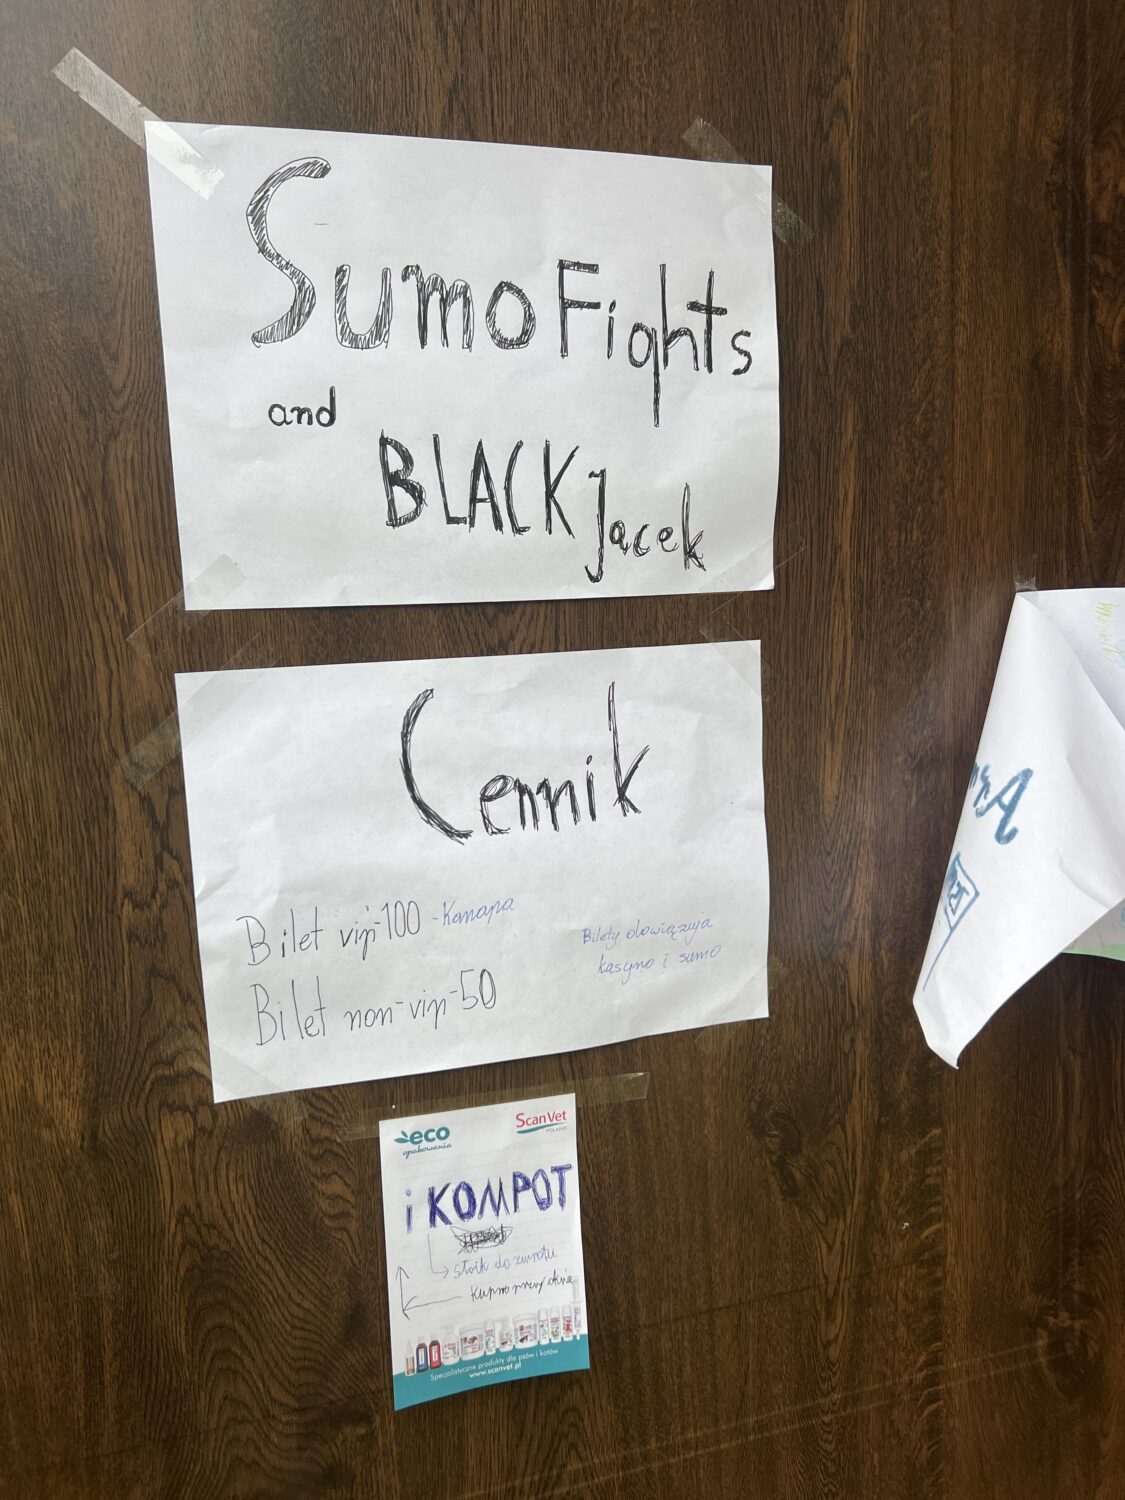 Sumo Fights
and
BLACK Jacek
Cennik
Bilet vip-100 -Kanapa
Bilet non-vip-50
Bilety obowiązują
kasyno i sumo
eco
opakowania
ScanVet
POLAND
i KOMPOT
słoik do zwrotu
Kupno przy oknie
Specjalistyczne produkty dla psów i kotów
www.scanvet.pl